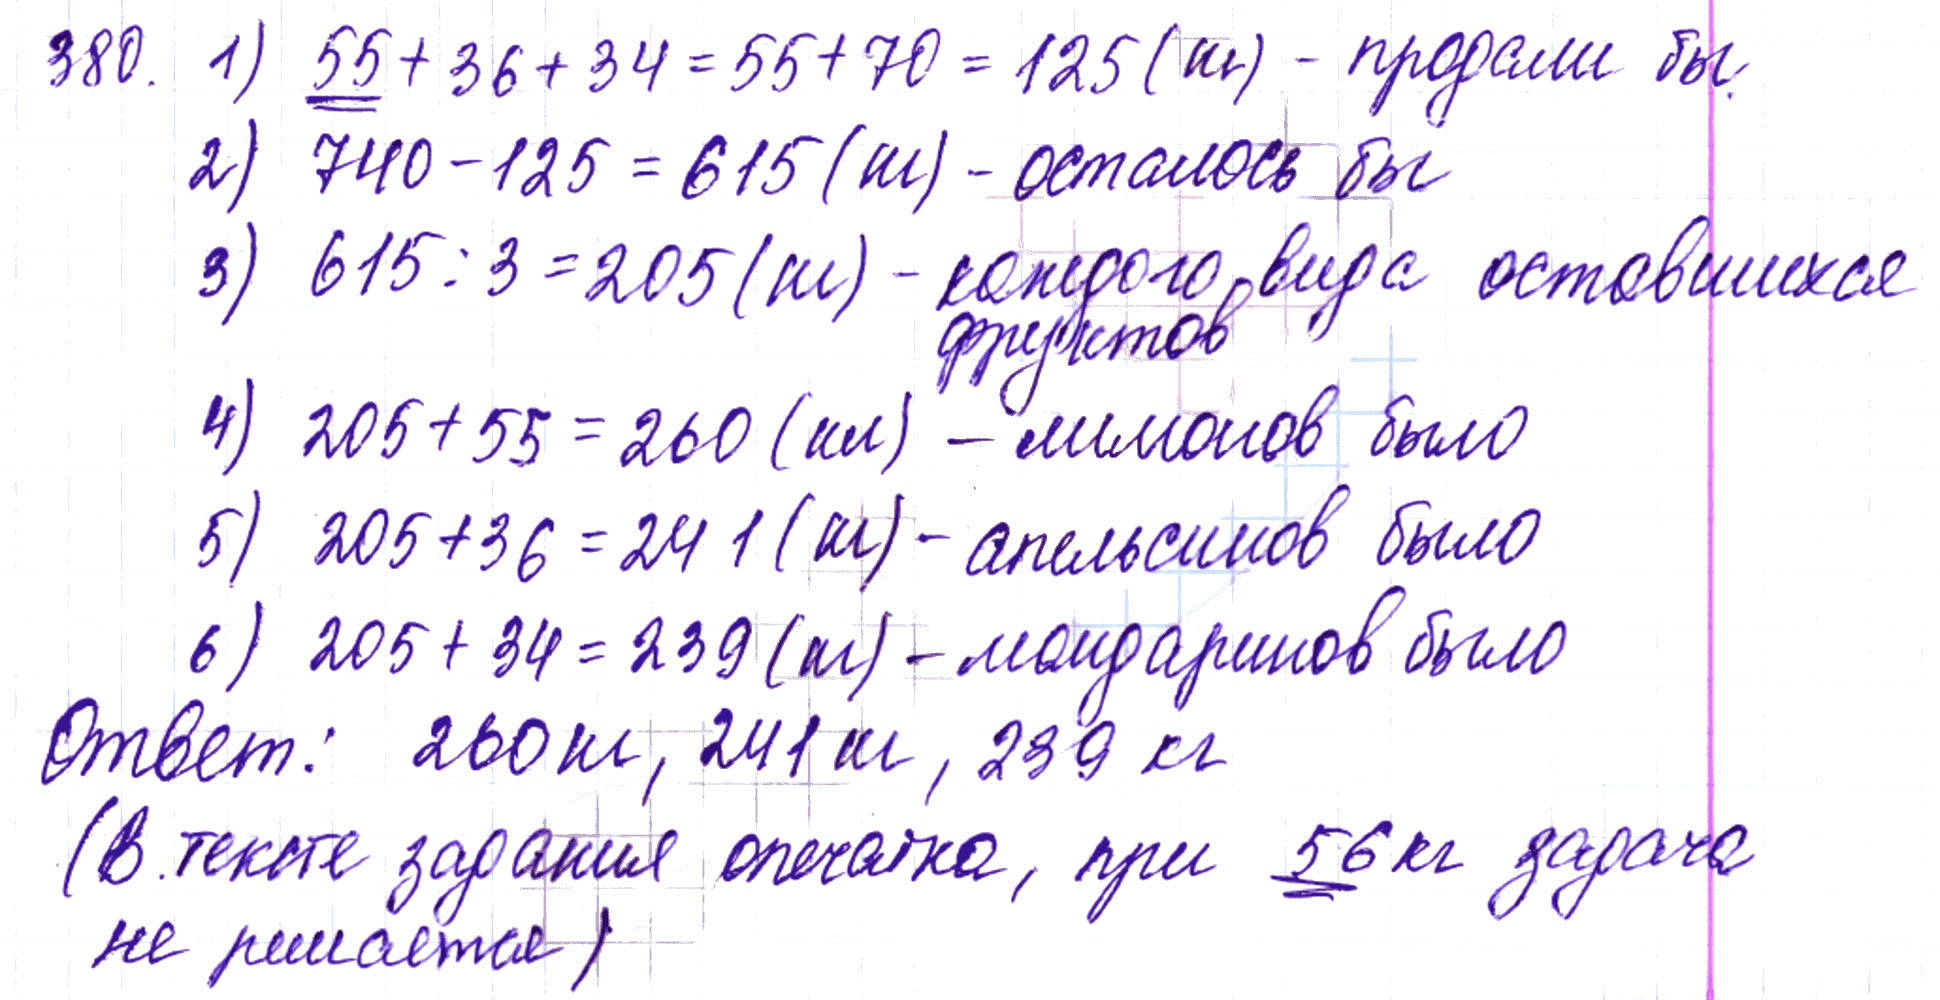 380. 1) 55 + 36 + 34 = 55 + 70 = 125 (кг) - продали бы.
2) 740 - 125 = 615 (кг) - осталось бы
3) 615 : 3 = 205 (кг) - каждого вида оставшихся
фруктов
4) 205 + 55 = 260 (кг) - лимонов было
5) 205 + 36 = 241 (кг) - апельсинов было
6) 205 + 34 = 239 (кг) - мандаринов было
Ответ: 260 кг, 241 кг, 239 кг
(В тексте задания опечатка, при 56 кг задача
не решается)